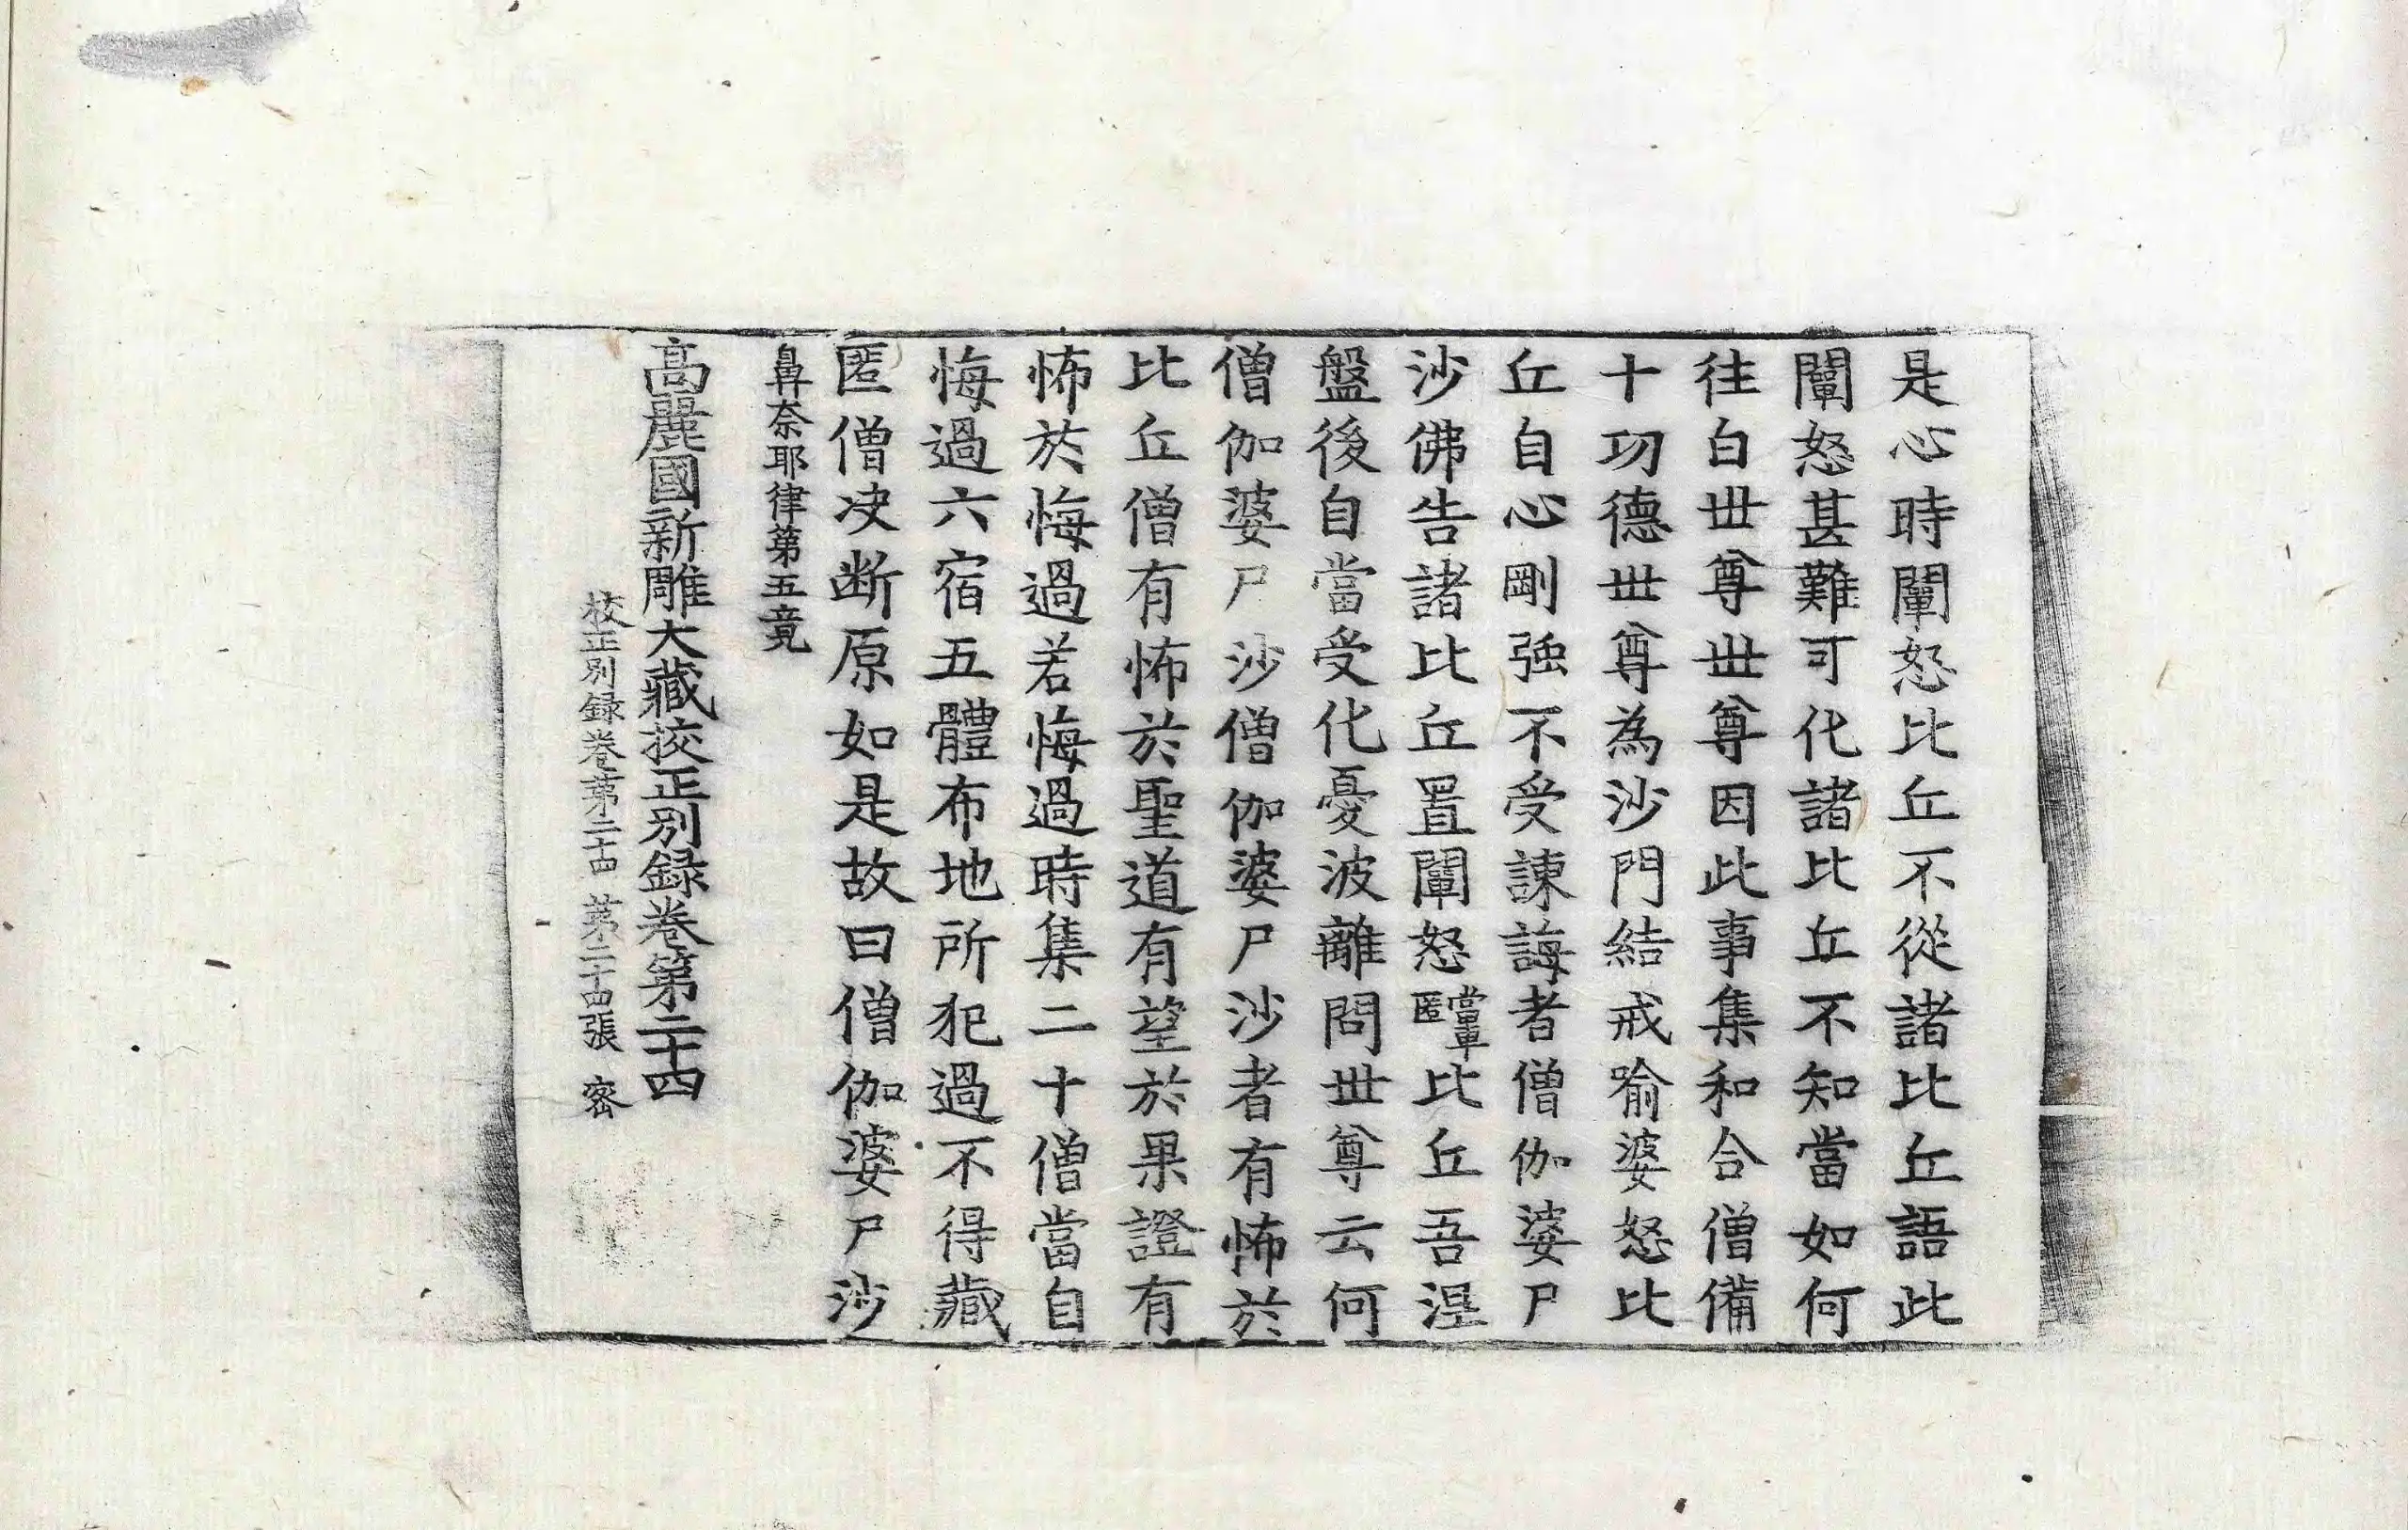 是心時闡怒比丘不從諸比丘語此
闡怒甚難可化諸比丘不知當如何
往白世尊世尊因此事集和合僧備
十功德世尊為沙門結戒喻婆怒比
丘自心剛強不受諫誨者僧伽婆尸
沙佛告諸比丘置闡怒當車匿比丘吾涅
盤後自當受化憂波離問世尊云何
僧伽婆尸沙僧伽婆尸沙者有怖於
比丘僧有怖於聖道有望於果證有
怖於悔過若悔過時集二十僧當自
悔過六宿五體布地所犯過不得藏
匿僧决断原如是故曰僧伽婆尸沙
鼻奈耶律第五竟
高麗國新雕大藏挍正別録卷第二十四
校正別録卷第二十四 第二十四張 密